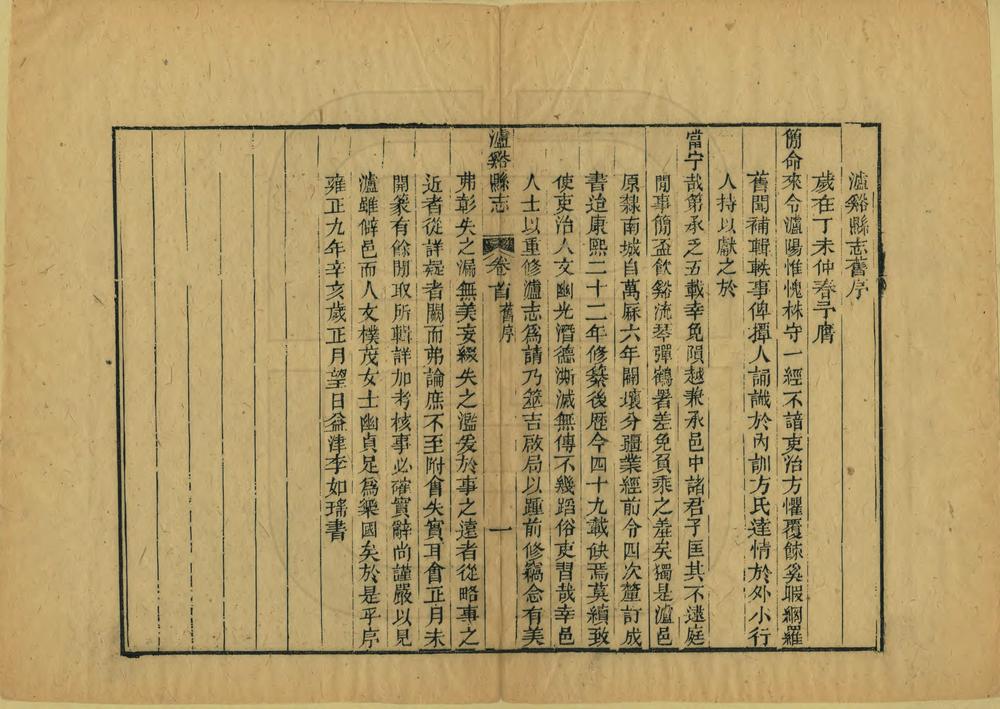 瀘谿縣志舊序
歲在丁未仲春予膺
簡命來令瀘陽惟愧株守一經不諳吏治方懼覆餗奚暇網羅
舊聞補輯軼事俾撢人誦誡於內訓方氏達情於外小行
人持以獻之於
當宁哉第承乏五載幸免隕越兼承邑中諸君子匡其不逮庭
閒事簡盃飲谿流琴彈鶴署差免負乘之羞矣獨是瀘邑
原隸南城自萬厤六年闢壤分疆業經前令四次釐訂成
書迨康熙二十二年修纂後歷今四十九載缺焉莫續致
使吏治人文幽光潛德澌滅無傳不幾蹈俗吏習哉幸邑
人士以重修瀘志為請乃筮吉啟局以踵前修竊念有美
瀘谿縣志 卷首 舊序 一
弗彰失之漏無美妄綴失之濫爰於事之遠者從略事之
近者從詳疑者闕而弗論庶不至附會失實耳會正月未
開篆有餘閒取所輯詳加考核事必確實辭尚謹嚴以見
瀘雖僻邑而人文樸茂女士幽貞足為樂國矣於是乎序
雍正九年辛亥歲正月望日益津李如瑤書